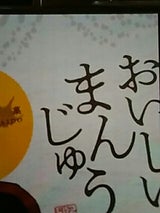 おいしい
まんじゅう